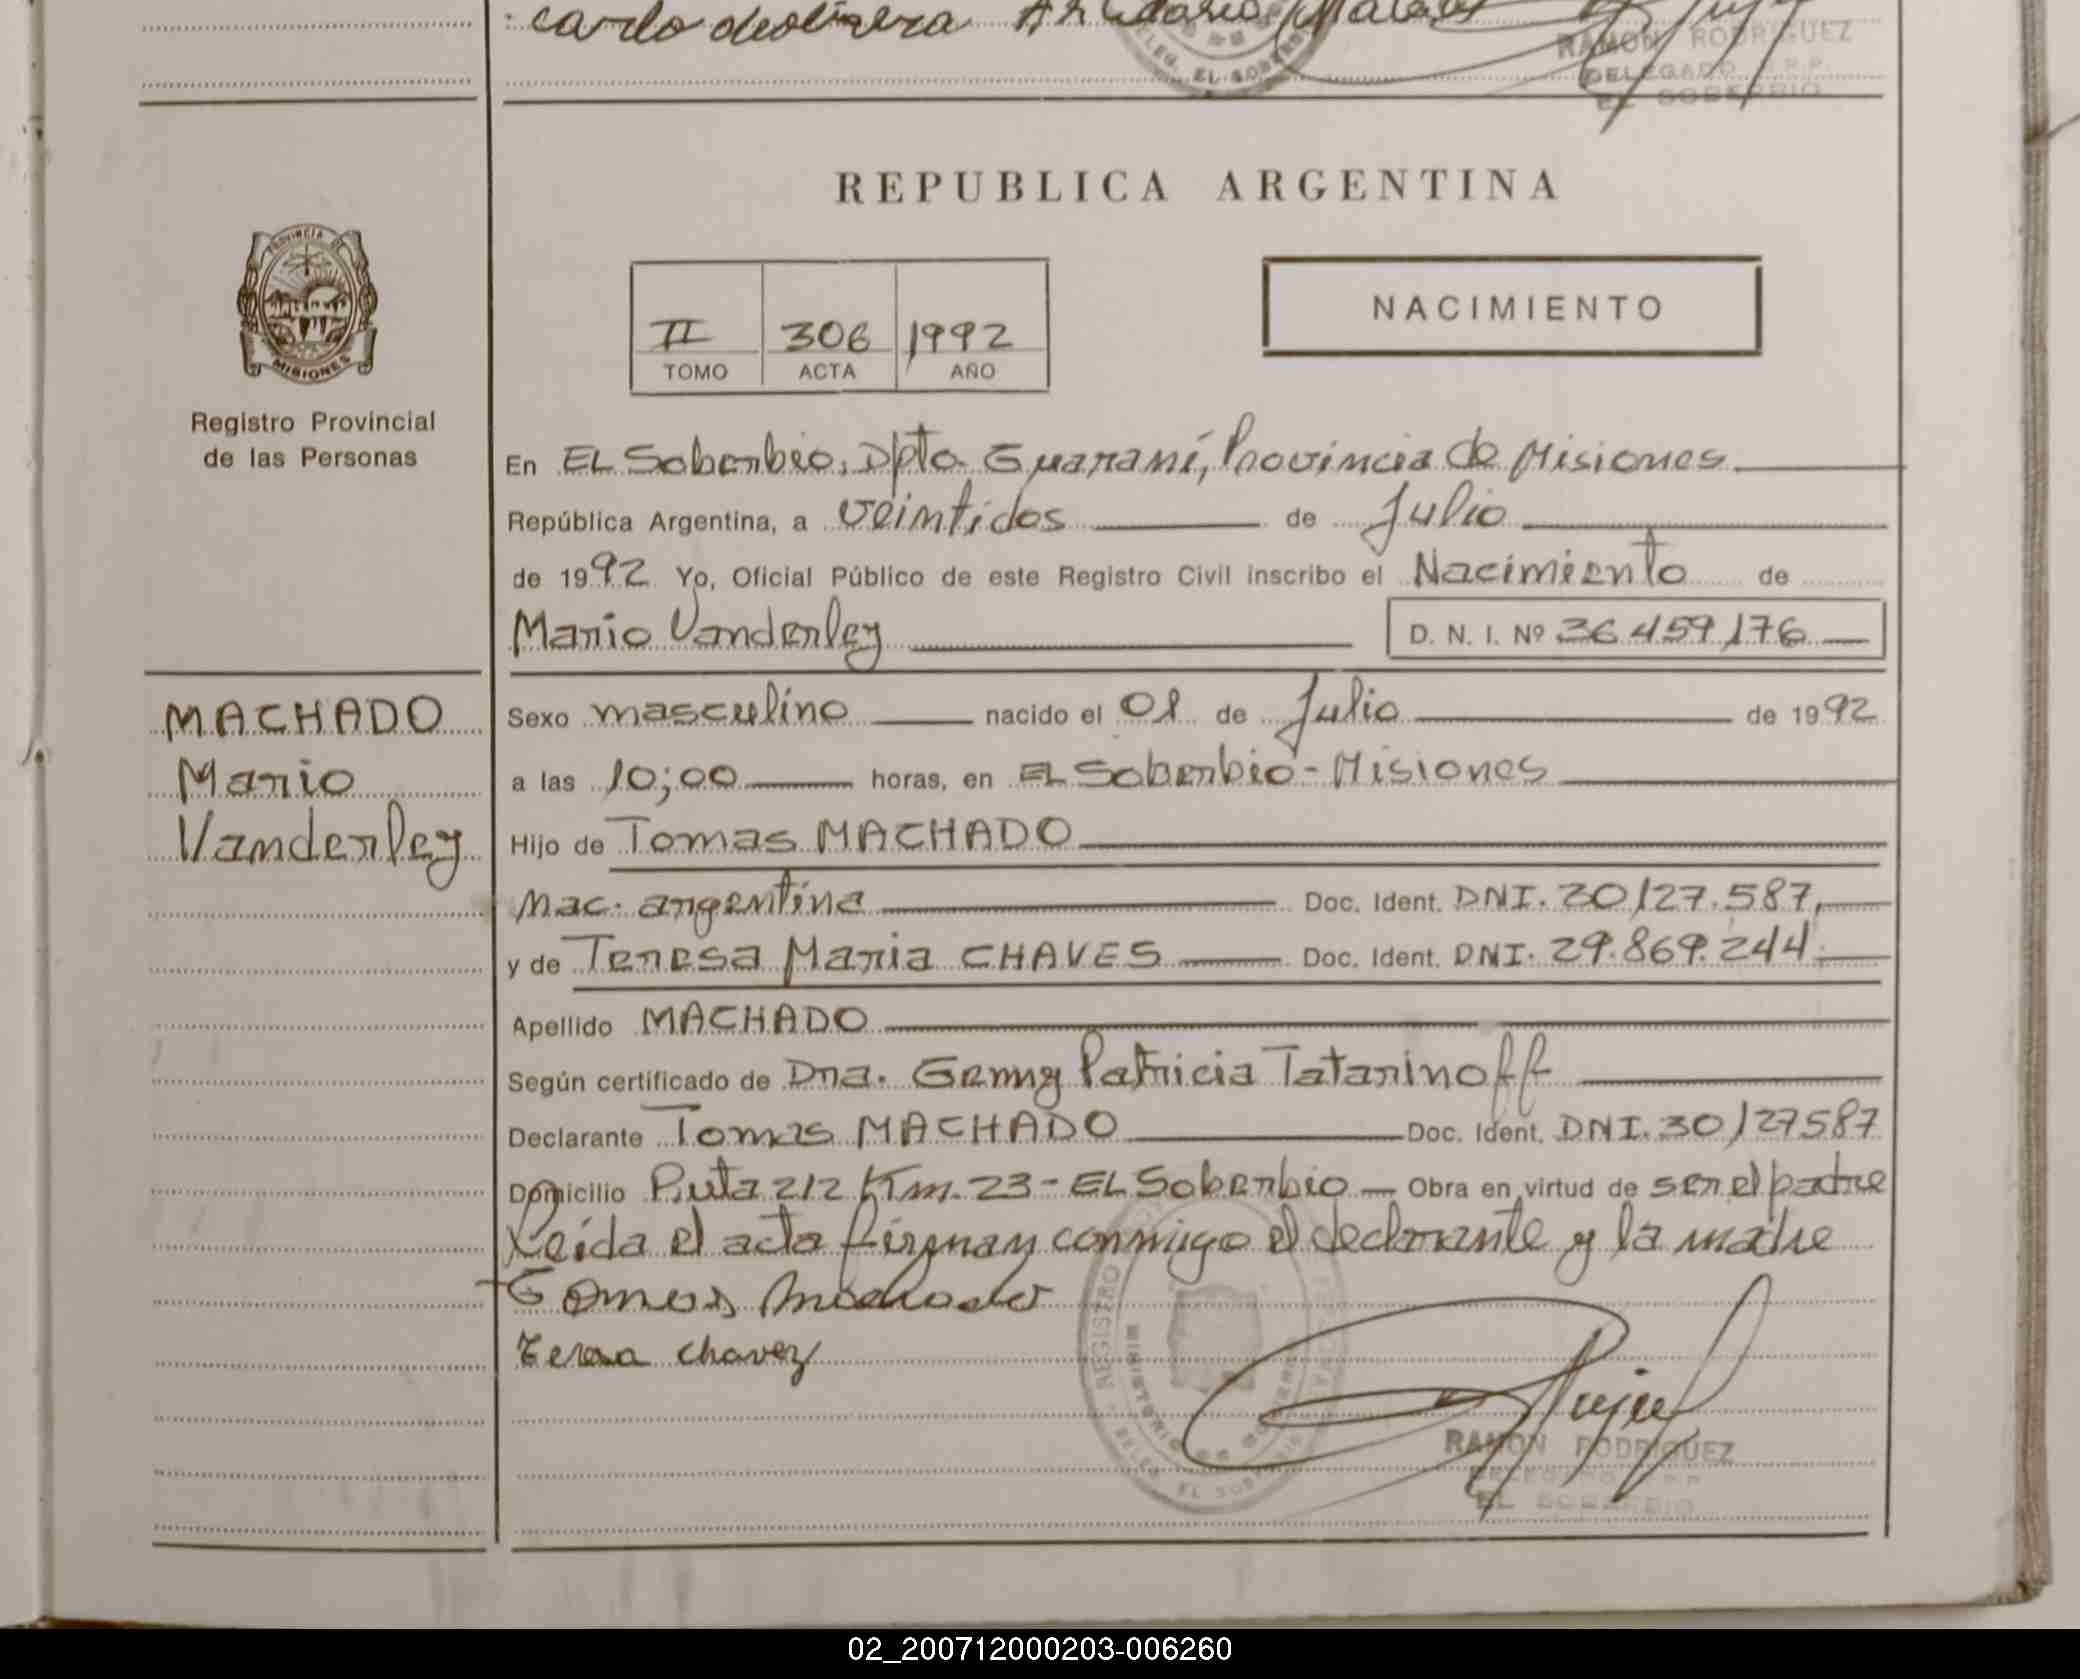 carlo deolivera
DELEG. EL SOBERBIO
RAMON RODRIGUEZ
DELEGADO R.P.P.
EL SOBERBIO
REPUBLICA ARGENTINA
PROVINCIA DE
MISIONES
Registro Provincial
de las Personas
II 306 1992
TOMO ACTA AÑO
NACIMIENTO
En EL Soberbio, Dpto Guaraní, Provincia de Misiones
República Argentina, a veintidos de Julio
de 1992 Yo, Oficial Público de este Registro Civil inscribo el Nacimiento de
Mario Vanderley D. N. I. Nº 36459176
MACHADO
Mario
Vanderley
Sexo masculino nacido el 01 de Julio de 1992
a las 10;00 horas, en EL Soberbio - Misiones
Hijo de Tomas MACHADO
Nac. argentina Doc. Ident. DNI. 30127.587,
y de Teresa Maria CHAVES Doc. Ident. DNI. 29.869.244
Apellido MACHADO
Según certificado de Dra. Genny Patricia Tatarinoff
Declarante Tomas MACHADO Doc. Ident. DNI. 30127587
Domicilio Ruta 212 Km. 23 - EL Soberbio Obra en virtud de ser el padre
Leída el acta firman conmigo el declarante y la madre
Tomas Machado
Teresa chavez
REGISTRO
MINISTERIO DE GOBIERNO
DELEG. EL SOBERBIO
RAMON RODRIGUEZ
DELEGADO R.P.P.
EL SOBERBIO
02_200712000203-006260